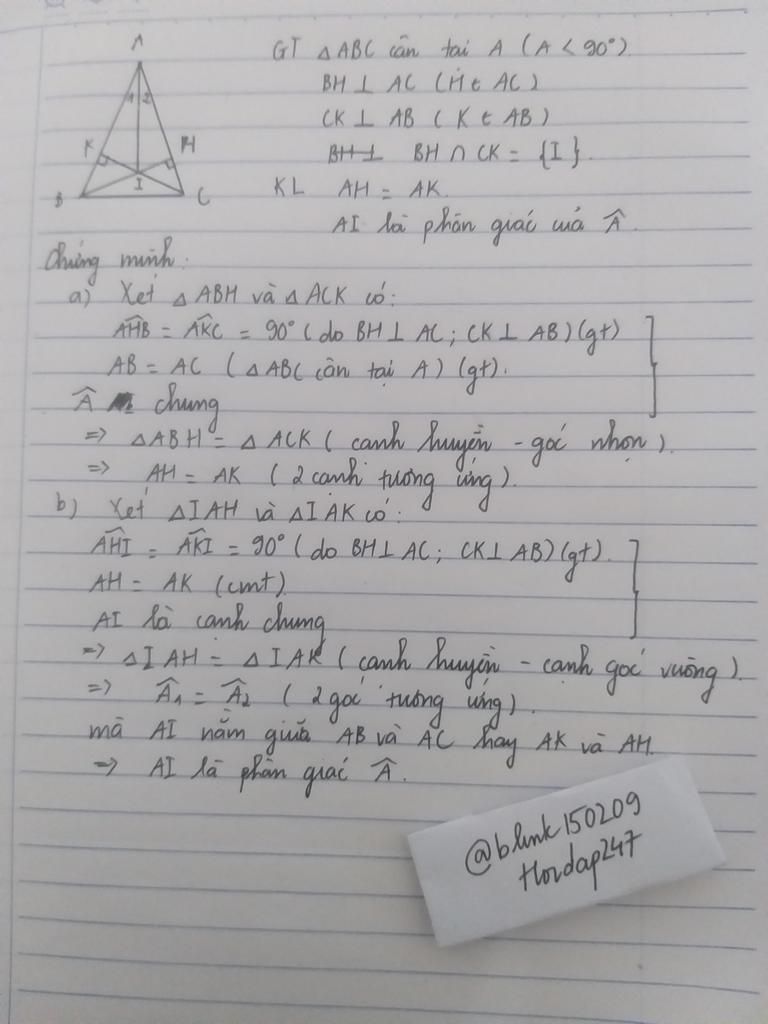 A
1 2
K H
I
B C
GT △ABC cân tại A (A < 90°)
BH ⊥ AC (H ∈ AC)
CK ⊥ AB (K ∈ AB)
BH ⊥ BH ∩ CK = {I}.
KL AH = AK.
AI là phân giác của Â.
Chứng minh:
a) Xét △ABH và △ACK có:
AHB = AKC = 90° (do BH ⊥ AC; CK ⊥ AB) (gt)
AB = AC (△ABC cân tại A) (gt).
 chung
=> △ABH = △ACK (cạnh huyền - góc nhọn).
=> AH = AK (2 cạnh tương ứng).
b) Xét △IAH và △IAK có:
AHI = AKI = 90° (do BH ⊥ AC; CK ⊥ AB) (gt).
AH = AK (cmt)
AI là cạnh chung
=> △IAH = △IAK (cạnh huyền - cạnh góc vuông).
=> Â1 = Â2 (2 góc tương ứng).
mà AI nằm giữa AB và AC hay AK và AH.
=> AI là phân giác Â.
@blink150209
Hoidap247